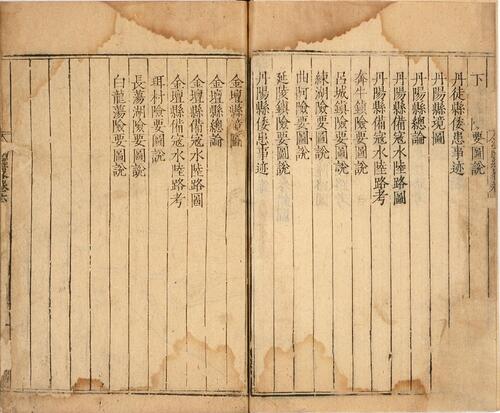 下 要圖說
丹徒縣倭患事迹
丹陽縣境圖
丹陽縣總論
丹陽縣備寇水陸路圖
丹陽縣備寇水陸路考
奔牛鎮險要圖說
呂城鎮險要圖說
練湖險要圖說
曲阿險要圖說
延陵鎮險要圖說
丹陽縣倭患事迹
金壇縣境圖
金壇縣總論
金壇縣備寇水陸路圖
金壇縣備寇水陸路考
珥村險要圖說
長蕩湖險要圖說
白龍蕩險要圖說